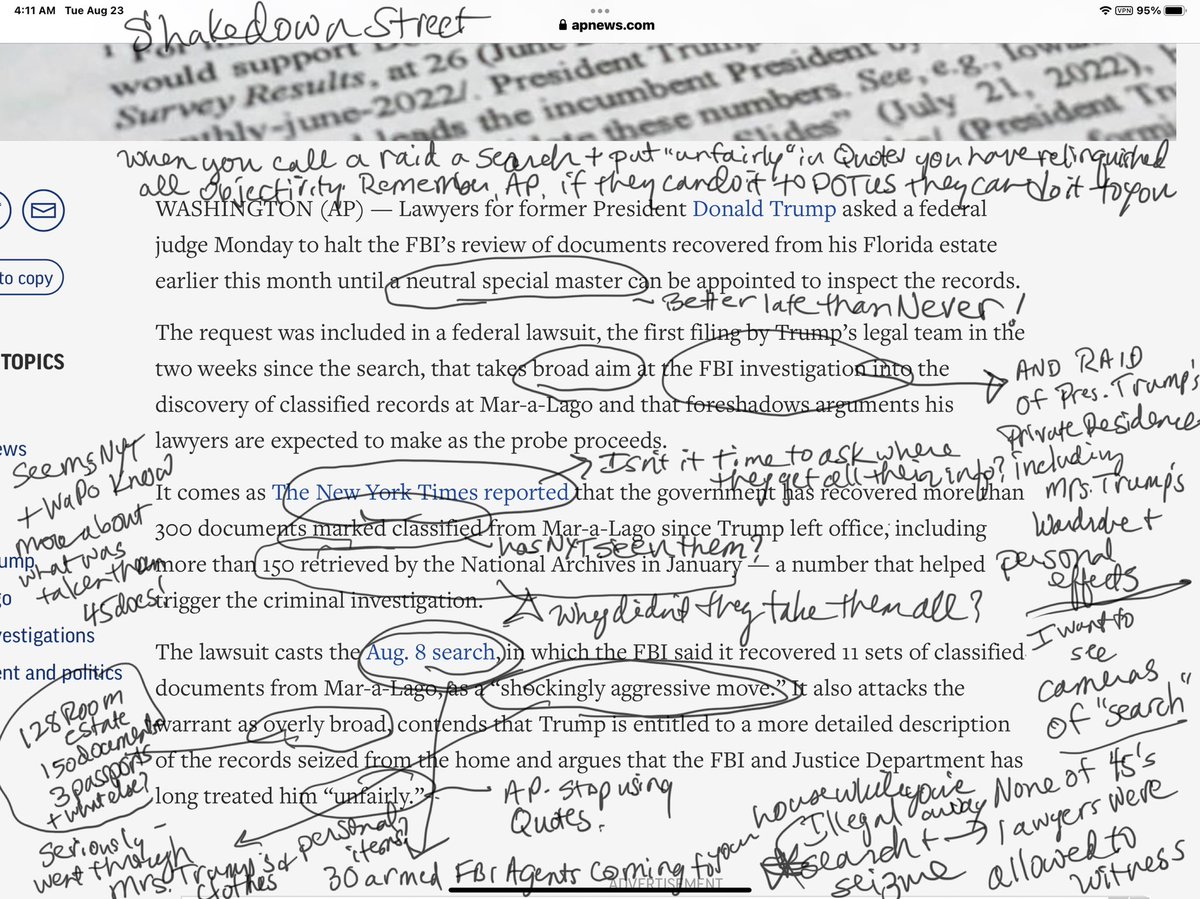 4:11 AM Tue Aug 23
apnews.com
VPN 95%
Shakedown Street
would support
Survey Results, at 26 (June
thly-june-2022/. President Trump
leads the incumbent President
these numbers. See, e.g.,
Slides" (July 21, 2022),
(President Tr
when you call a raid a search + put "unfairly" in Quotes you have relinquished
all objectivity. Remember, AP. if they can do it to POTUS they can do it to you
WASHINGTON (AP) — Lawyers for former President Donald Trump asked a federal
judge Monday to halt the FBI's review of documents recovered from his Florida estate
to copy
earlier this month until a neutral special master can be appointed to inspect the records.
~ Better late than Never!
The request was included in a federal lawsuit, the first filing by Trump's legal team in the
TOPICS
two weeks since the search, that takes broad aim at the FBI investigation into the
discovery of classified records at Mar-a-Lago and that foreshadows arguments his
lawyers are expected to make as the probe proceeds.
AND RAID
of Pres. Trump's
Private Residence
including
Mrs. Trump's
Wardrobe +
personal
effects
ews
Seems NYT
+ WaPo Know
more about
what was
taken than
45 does!
Isn't it time to ask where
they get all their info?
It comes as The New York Times reported that the government has recovered more than
300 documents marked classified from Mar-a-Lago since Trump left office, including
has NYT seen them?
ump
more than 150 retrieved by the National Archives in January — a number that helped
go
trigger the criminal investigation.
Why didn't they take them all?
vestigations
I want to
see
cameras
of "search"
The lawsuit casts the Aug. 8 search, in which the FBI said it recovered 11 sets of classified
ent and politics
documents from Mar-a-Lago, as a "shockingly aggressive move." It also attacks the
warrant as overly broad, contends that Trump is entitled to a more detailed description
of the records seized from the home and argues that the FBI and Justice Department has
long treated him "unfairly."
128 Room
Estate
150 documents
3 passports
+ what else?
AP. Stop using
Quotes.
Seriously -
went through
Mrs. Trump's
clothes
+ personal
items?
30 armed FBI Agents coming to your
house while you're
away
Illegal
search +
seizme
None of 45's
lawyers were
allowed to
witness
ADVERTISEMENT